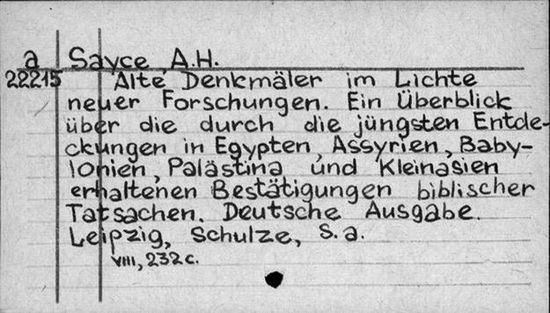 a Sayce, A.H.
22215 Alte Denkmäler im Lichte
neuer Forschungen. Ein Überblick
über die durch die jüngsten Entde-
ckungen in Egypten, Assyrien, Baby-
lonien, Palästina und Kleinasien
erhaltenen Bestätigungen biblischer
Tatsachen. Deutsche Ausgabe.
Leipzig, Schulze, s.a.
VIII, 232 c.